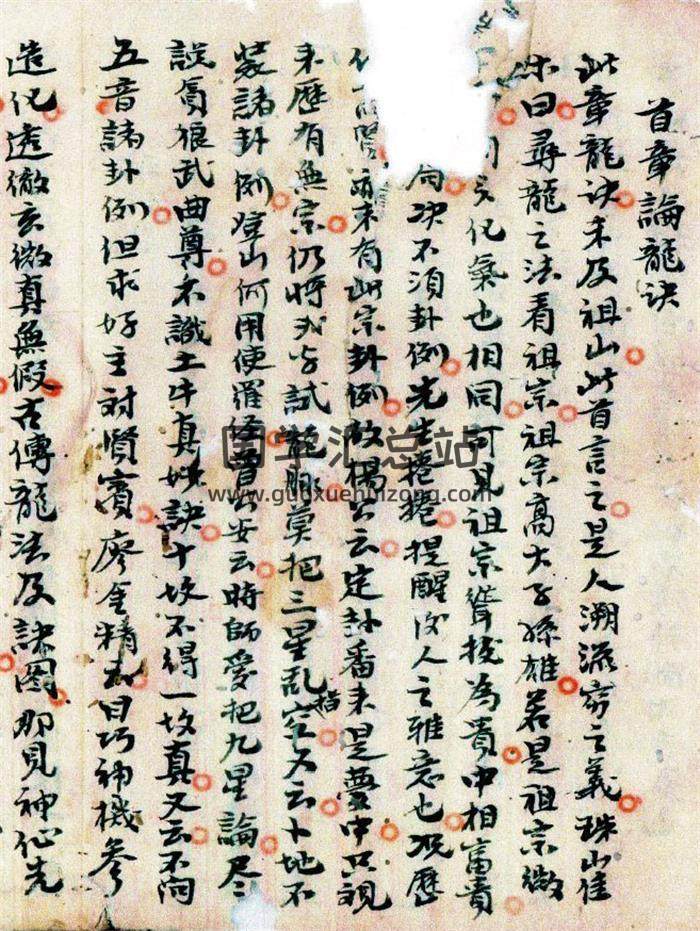 首章論龍訣
此章龍訣未及祖山此首言之是人溯流窮之義珠山佳
尋龍之法看祖宗祖宗高大子孫雄若是祖宗微
化氣也相同可見祖宗聳拔為貴中相富貴
不須卦例先生捲捲提醒後人之雅意也況歷
未有此宗卦例故楊公云定卦番來是夢中只觀
來歷有無宗仍將試龍脈莫把三星乱指空又云卜地不
裝諸卦例登山何用使羅經曾公安云時師愛把九星論盡
說貪狼武曲尊不識土牛真妙訣十坟不得一坟真又云不问
五音諸卦例但求好主対賢賓廖金精云曰巧神機參
造化透徹玄微真無假古傳龍法及諸图那見神仙先
国学汇总站
www.guoxuehuizong.com